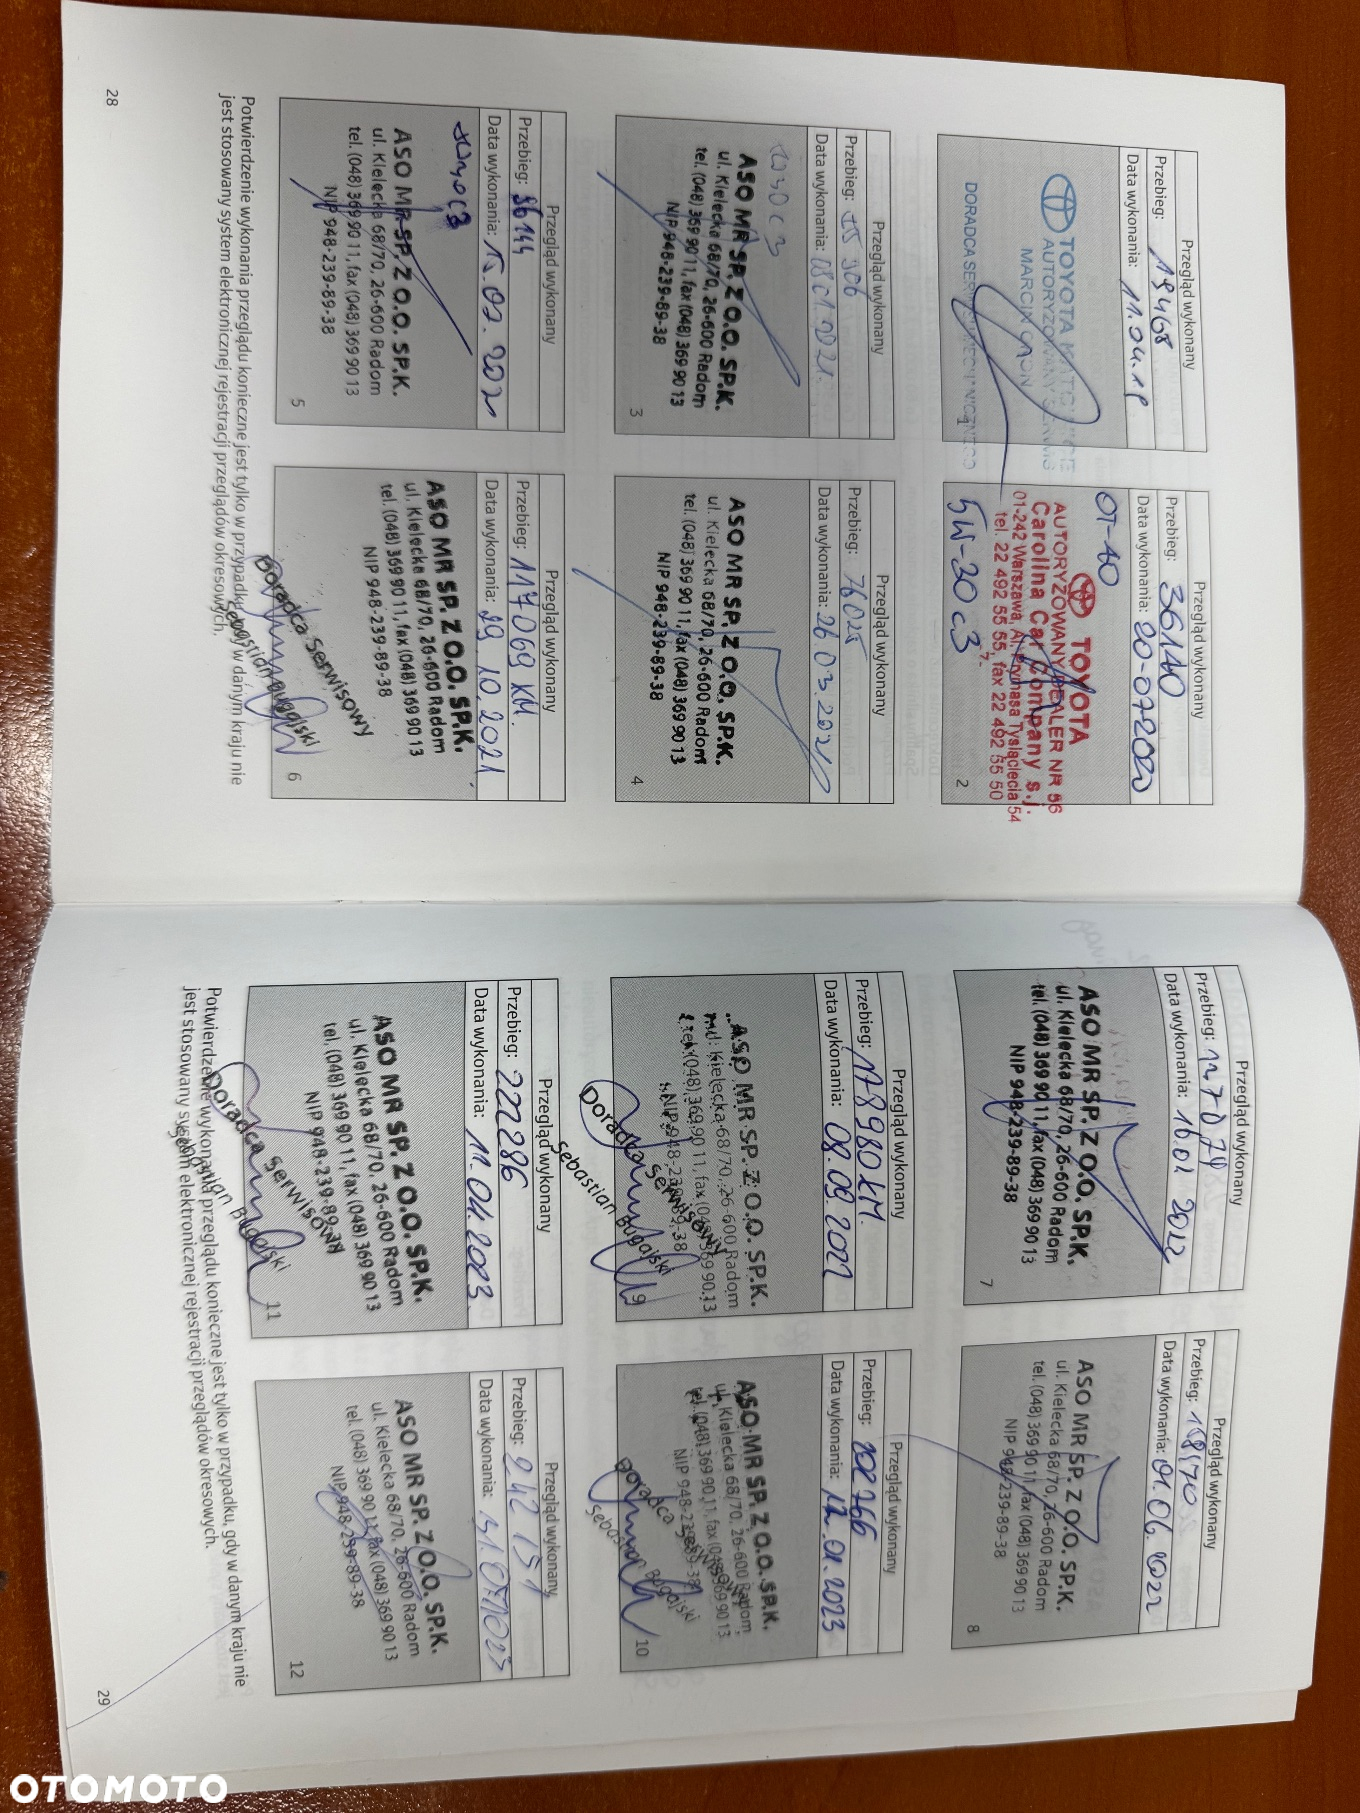 Przegląd wykonany
Przebieg: 19468
Data wykonania: 11.04.19
TOYOTA
AUTORYZOWANY SERWIS
MARCIN
DORADCA SERWISU MECHANICZNEGO
1
Przegląd wykonany
Przebieg: 36140
Data wykonania: 20-072020
OT-40
TOYOTA
AUTORYZOWANY DEALER NR 56
Carolina Car Company s.j.
01-242 Warszawa, Al. Prymasa Tysiąclecia 54
tel. 22 492 55 55, fax 22 492 55 50
5W-30 c3
2
Przegląd wykonany
Przebieg: 55 906
Data wykonania: 08.01.2021.
ASO MR SP. Z O.O. SP.K.
ul. Kielecka 68/70, 26-600 Radom
tel. (048) 369 90 11, fax (048) 369 90 13
NIP 948-239-89-38
3
Przegląd wykonany
Przebieg: 76025
Data wykonania: 26.03.2021
ASO MR SP. Z O.O. SP.K.
ul. Kielecka 68/70, 26-600 Radom
tel. (048) 369 90 11, fax (048) 369 90 13
NIP 948-239-89-38
4
Przegląd wykonany
Przebieg: 96144
Data wykonania: 15.07.2021
ASO MR SP. Z O.O. SP.K.
ul. Kielecka 68/70, 26-600 Radom
tel. (048) 369 90 11, fax (048) 369 90 13
NIP 948-239-89-38
5
Przegląd wykonany
Przebieg: 117069 KM.
Data wykonania: 29.10.2021
ASO MR SP. Z O.O. SP.K.
ul. Kielecka 68/70, 26-600 Radom
tel. (048) 369 90 11, fax (048) 369 90 13
NIP 948-239-89-38
Doradca Serwisowy
Sebastian Bugalski
6
Potwierdzenie wykonania przeglądu konieczne jest tylko w przypadku, gdy w danym kraju nie
jest stosowany system elektronicznej rejestracji przeglądów okresowych.
28
Przegląd wykonany
Przebieg:
Data wykonania: 16.02 2022
ASO MR SP. Z O.O. SP.K.
ul. Kielecka 68/70, 26-600 Radom
tel. (048) 369 90 11, fax (048) 369 90 13
NIP 948-239-89-38
7
Przegląd wykonany
Przebieg: 158702
Data wykonania: 01.06.2022
ASO MR SP. Z O.O. SP.K.
ul. Kielecka 68/70, 26-600 Radom
tel. (048) 369 90 11, fax (048) 369 90 13
NIP 948-239-89-38
8
Przegląd wykonany
Przebieg: 178980 KM.
Data wykonania: 08.09.2022
ASO MR SP. Z O.O. SP.K.
ul. Kielecka 68/70, 26-600 Radom
tel. (048) 369 90 11, fax (048) 369 90 13
NIP 948-239-89-38
Doradca Serwisowy
Sebastian Bugalski
9
Przegląd wykonany
Przebieg: 202766
Data wykonania: 12.01.2023
ASO MR SP. Z O.O. SP.K.
ul. Kielecka 68/70, 26-600 Radom
tel. (048) 369 90 11, fax (048) 369 90 13
NIP 948-239-89-38
Doradca Serwisowy
Sebastian Bugalski
10
Przegląd wykonany
Przebieg: 222286
Data wykonania: 11.04.2023.
ASO MR SP. Z O.O. SP.K.
ul. Kielecka 68/70, 26-600 Radom
tel. (048) 369 90 11, fax (048) 369 90 13
NIP 948-239-89-38
Doradca Serwisowy
Sebastian Bugalski
11
Przegląd wykonany
Przebieg: 242 151
Data wykonania: 31.07.2023
ASO MR SP. Z O.O. SP.K.
ul. Kielecka 68/70, 26-600 Radom
tel. (048) 369 90 11, fax (048) 369 90 13
NIP 948-239-89-38
12
Potwierdzenie wykonania przeglądu konieczne jest tylko w przypadku, gdy w danym kraju nie
jest stosowany system elektronicznej rejestracji przeglądów okresowych.
29
OTOMOTO